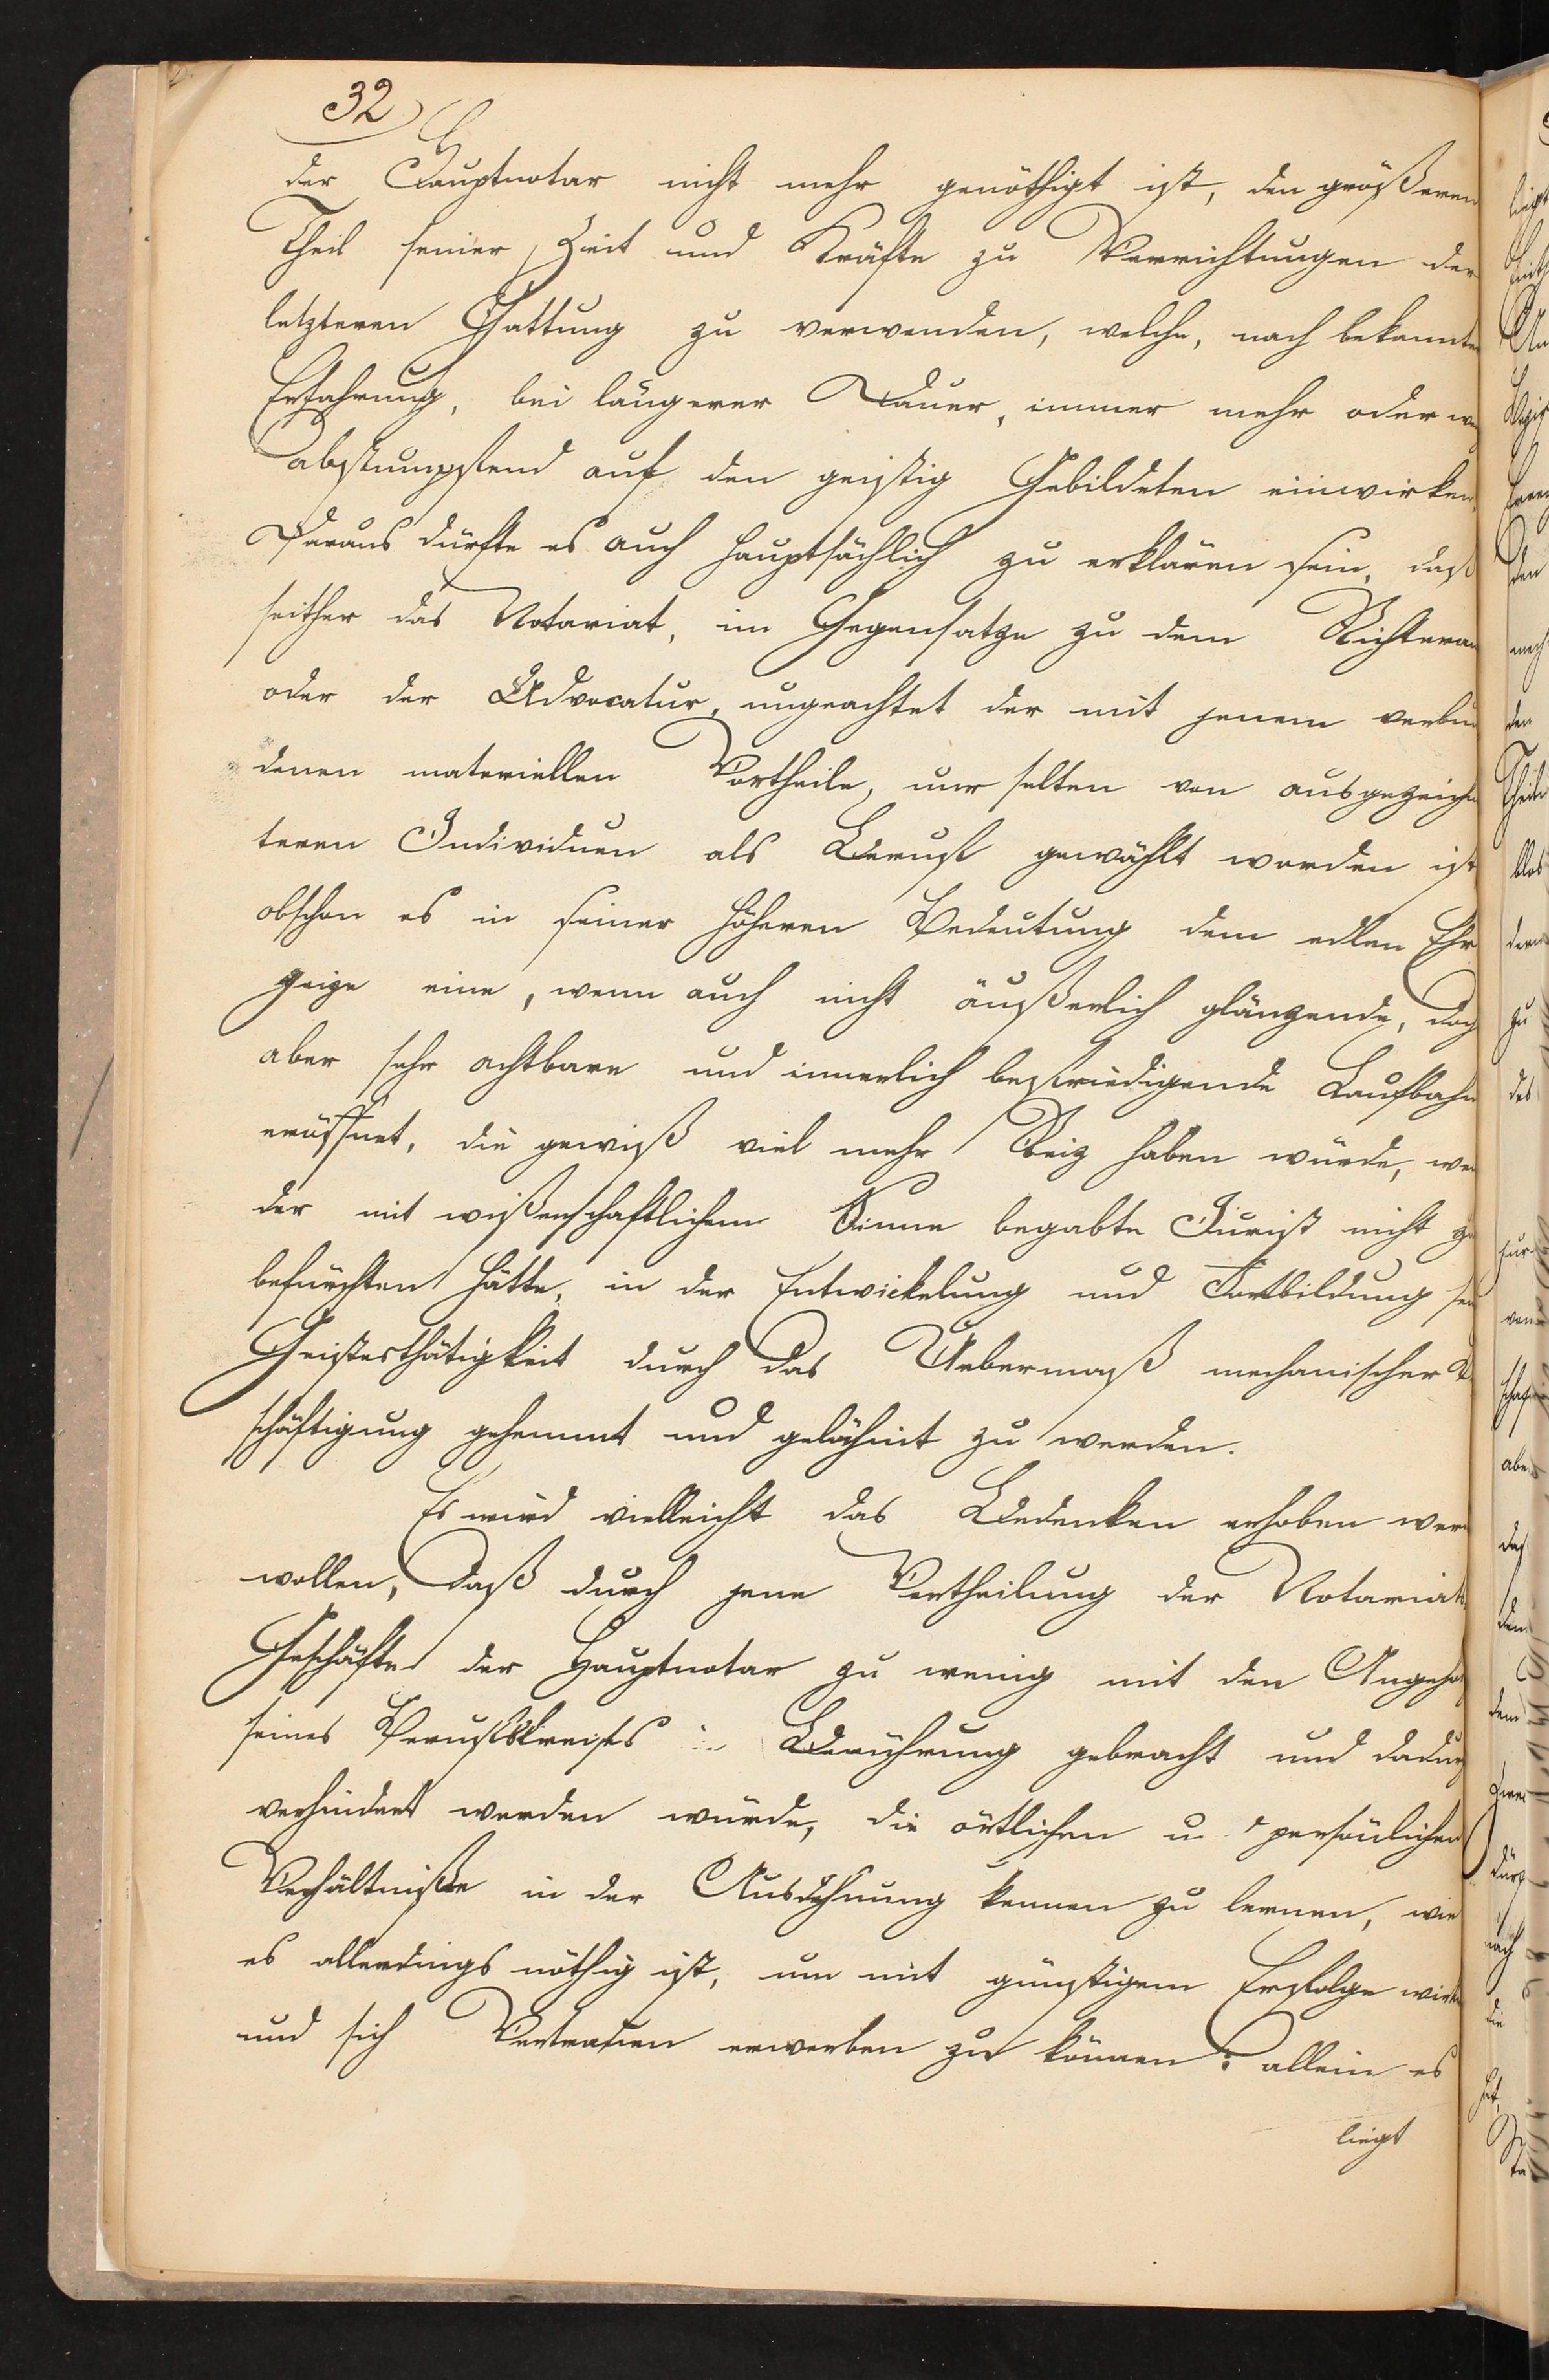 32
der Hauptnotar nicht mehr genöthigt ist, den größeren
Theil seiner Zeit und Kräfte zu Verrichtungen der
letzteren Gattung zu verwenden, welche, nach bekannter
Erfahrung, bei längerer Dauer, immer mehr oder we
abstumpfend auf den geistig Gebildeten einwirken,
Daraus dürfte es auch hauptsächlich zu erklären sein, daß
seither das Notariat, im Gegensatze zu dem Richteram
oder der Advocatur, ungeachtet der mit jenem verbun
denen materiellen Vortheile, nur selten von ausgezeichne
teren Individuen als Beruf gewählt worden ist
obschon es in seiner höheren Bedeutung dem edlen Ehr
geize eine, wenn auch nicht äußerlich glänzende, doch
aber sehr achtbare und innerlich befriedigende Laufbahn
eröffnet, die gewiß viel mehr Reiz haben würde, wen
der mit wißenschaftlichem Sinne begabte Jurist nicht zu
befürchten hätte, in der Entwickelung und Fortbildung sei
Geistesthätigkeit durch das Uebermaß mechanischer B
schäftigung gehemmt und gelähmt zu werden.
Es wird vielleicht das Bedenken erhoben wer
wollen, daß durch jene Vertheilung der Notariats
Geschäfte der Hauptnotar zu wenig mit den Angehö
seines Berufskreises in Berührung gebracht und dadurch
verhindert werden würde, die örtlichen u persönlichen
Verhältniße in der Ausdehnung kennen zu lernen, wie
es allerdings nöthig ist, um mit günstigem Erfolge wirken
und sich Vertrauen erwerben zu können: allein es
liegt